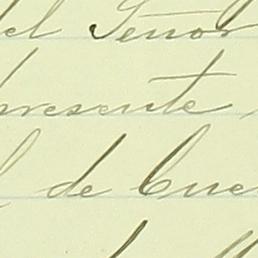 del Señor
presente
de Cue